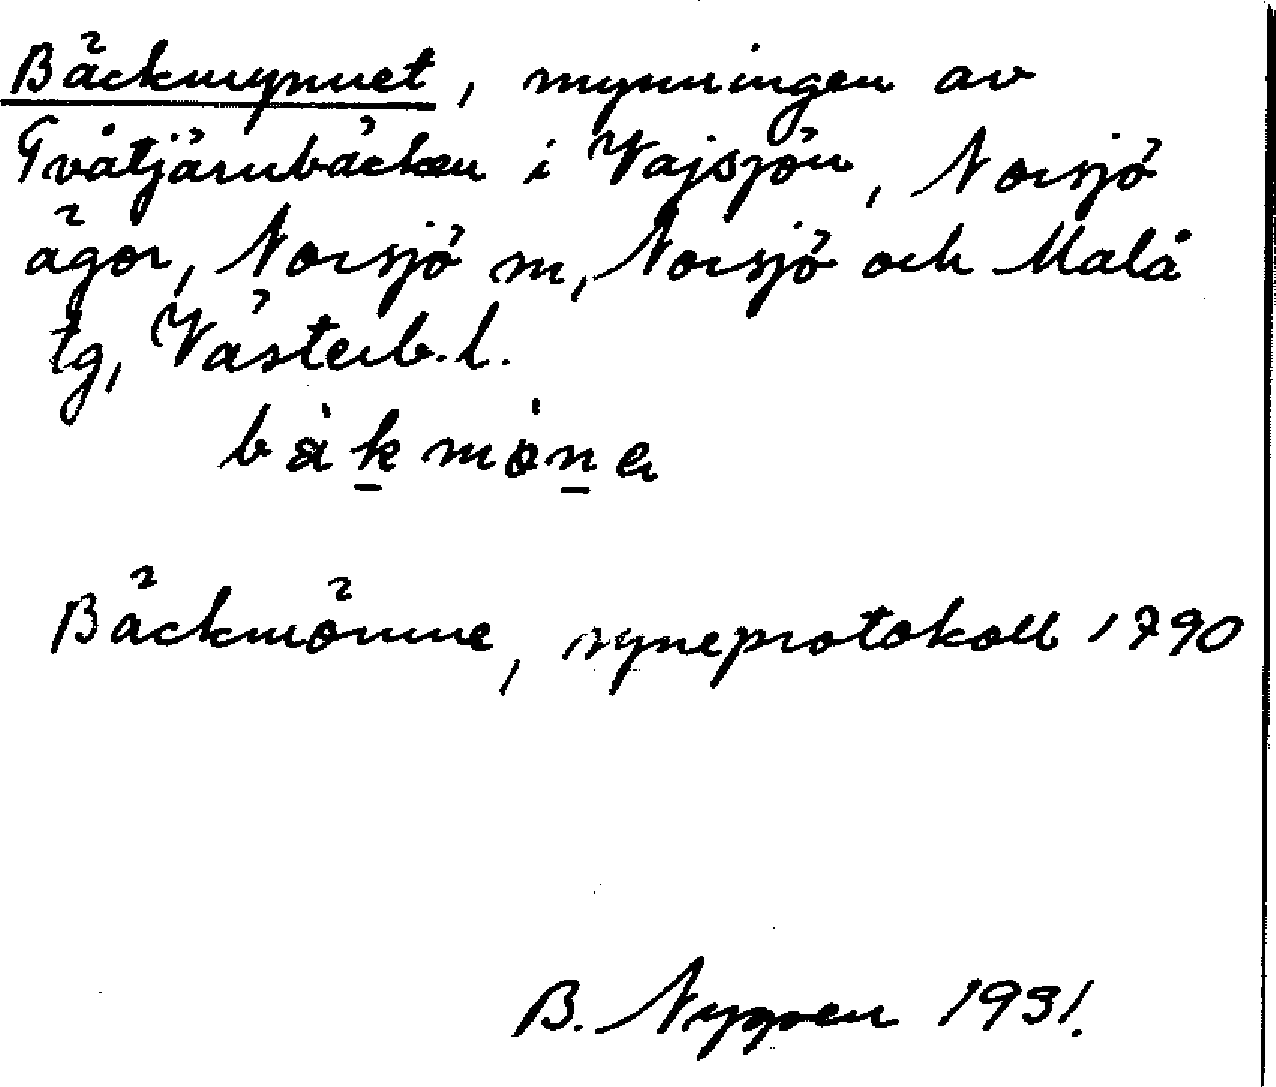 Bäckmynnet, mynningen av
Tvåtjärnbäcken i Vajsjön, Norsjö
ägor, Norsjö m, Norsjö och Malå
tg, Västerb. l.
Bäckmönne, syneprotokoll 1790
B. Nygren 1931.